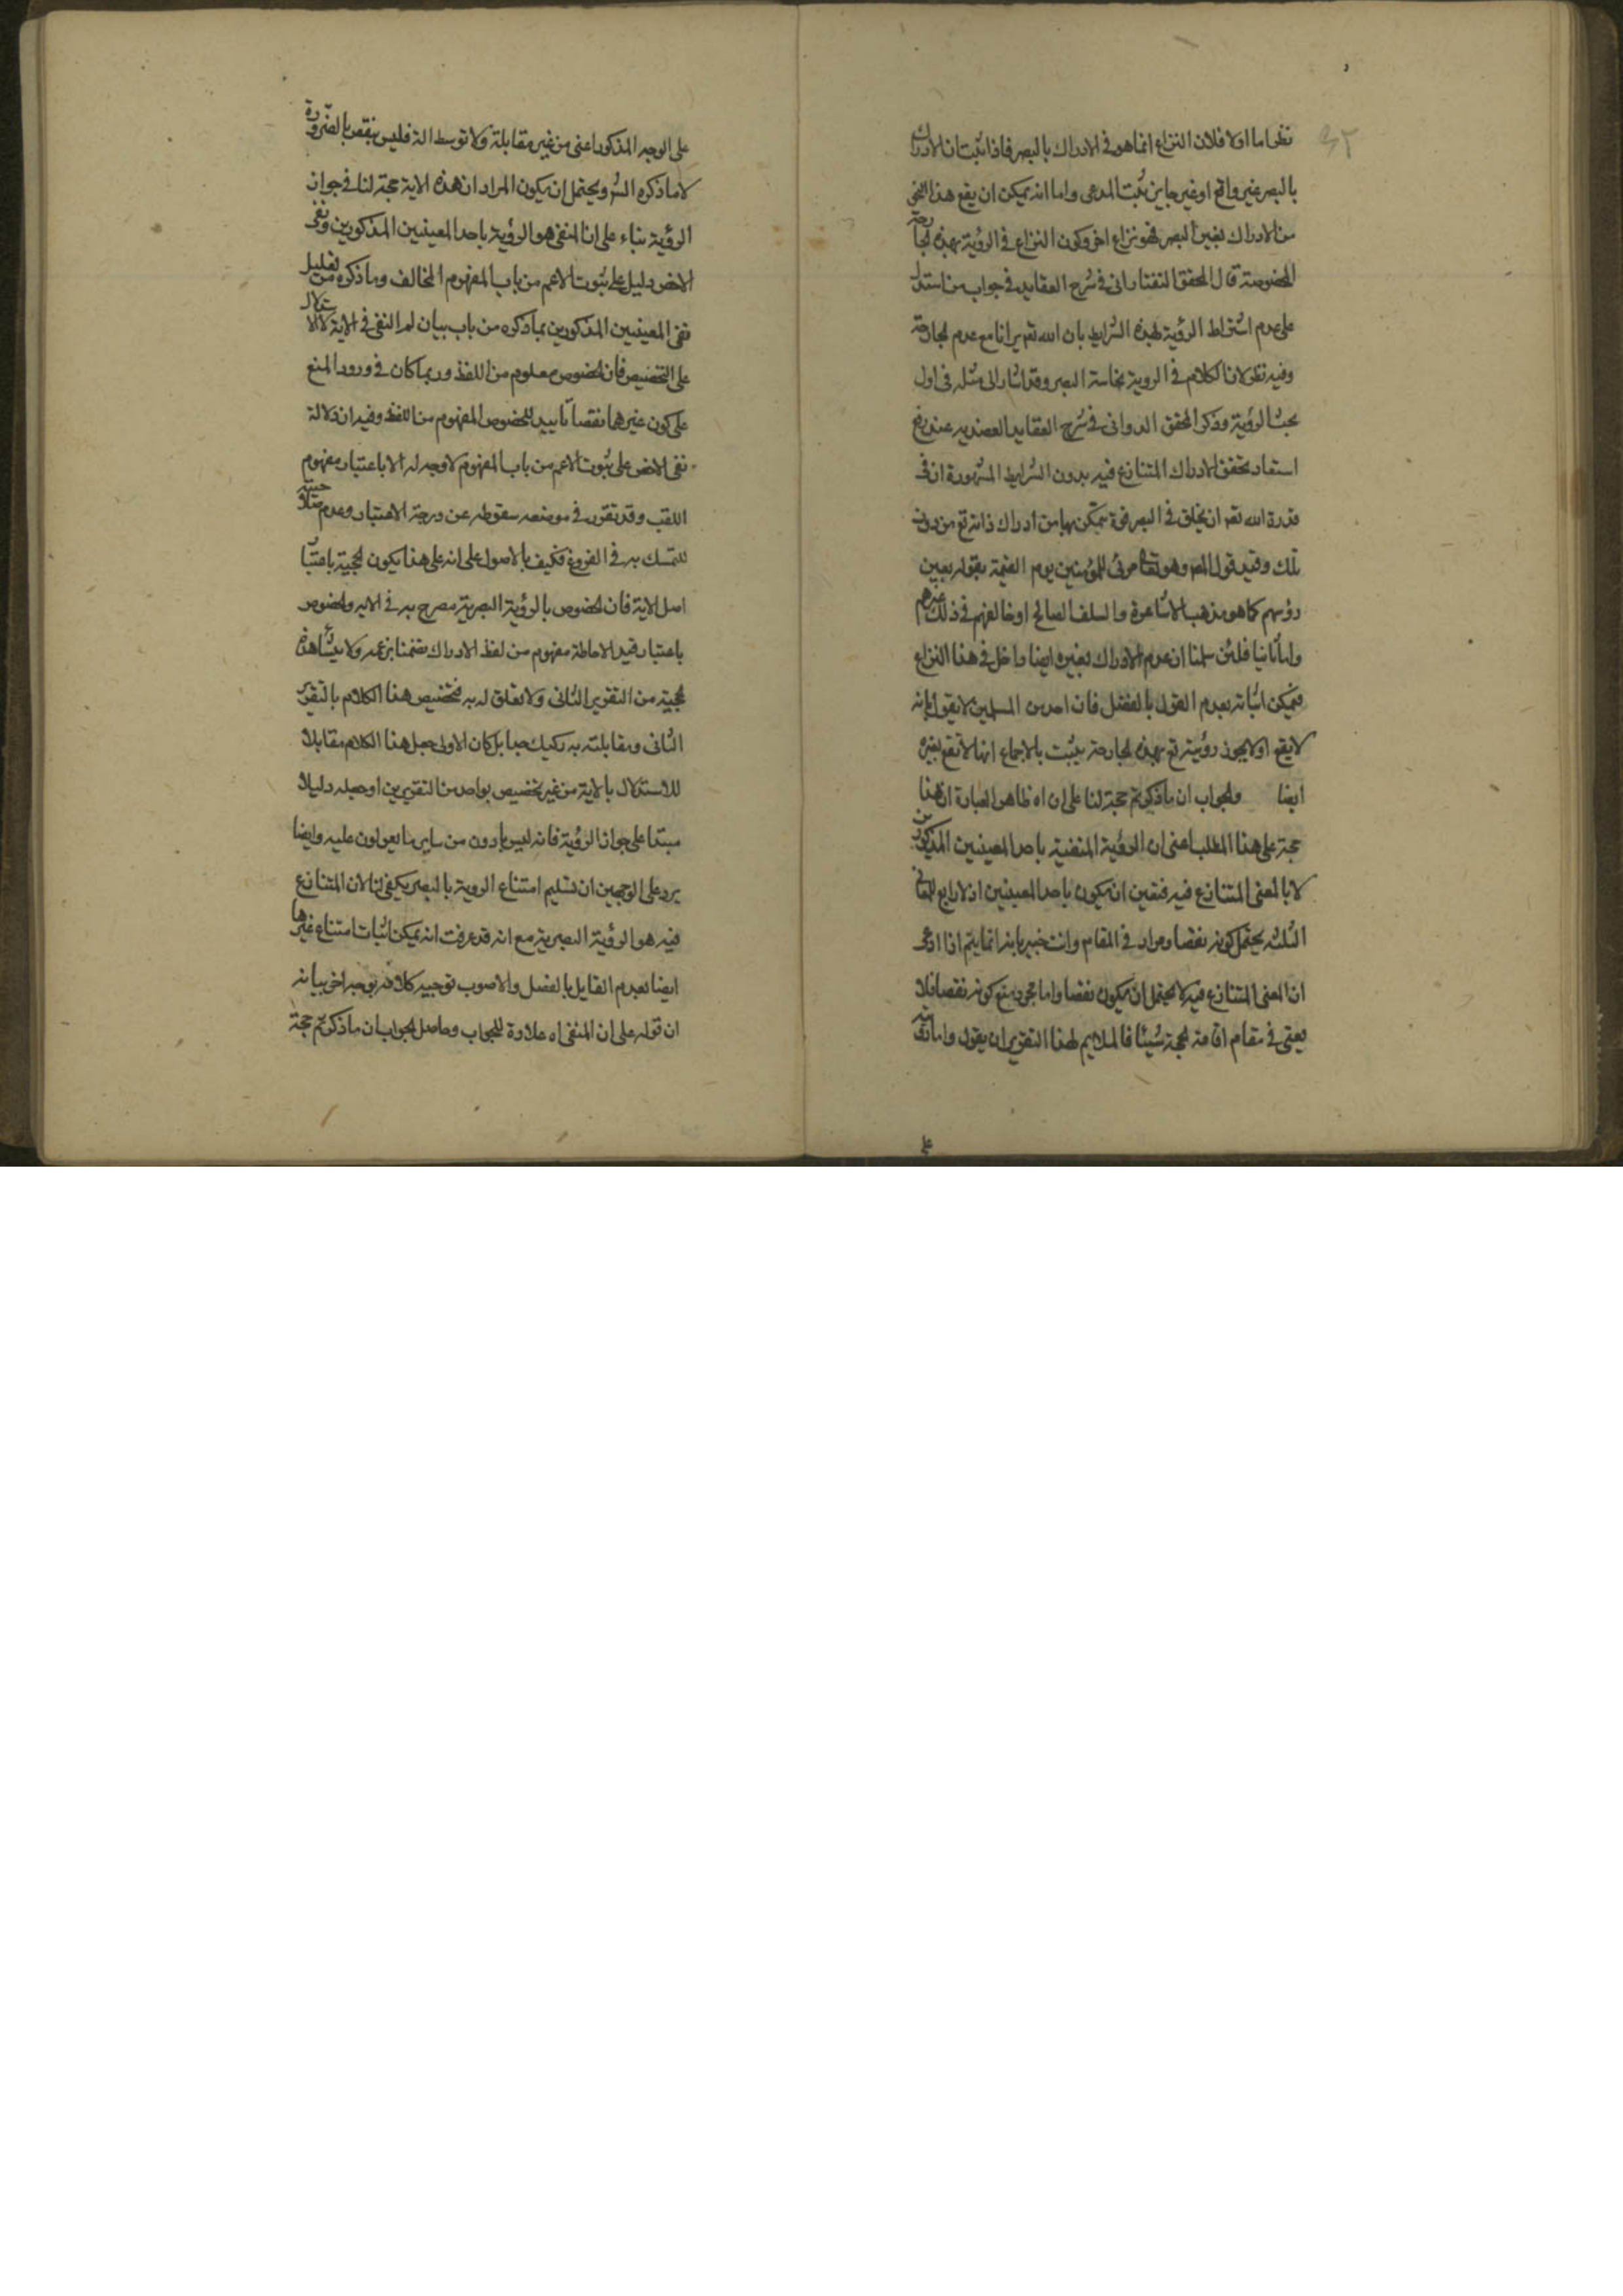 نظر اما اولا فلان النزاع انما هو فى الادراك بالبصر فاذا ثبت ان الادراك
بالبصر غير واقع او غير جايز ثبت المدعى واما انه يمكن ان يقع هذا النحو
من الادراك بغير البصر فهو نزاع اخر وكون النزاع فى الرؤية بهذه الجارحة
المخصوصة قال المحقق التفتازانى فى شرح العقايد فى جواب من استدل
على عدم اشتراط الرؤية بهذه الشرايط بان الله تعه يرانا مع عدم الجارحة
وفيه نظر لان الكلام فى الروية بحاسة البصر وقد اشار الى مثله فى اول
بحث الرؤية وذكر المحقق الدوانى فى شرح العقايد العضديه عند رفع
استبعاد تحقق الادراك المتنازع فيه بدون الشرايط المشهورة ان فى
قدرة الله تعه ان يخلق فى البصر قوة يتمكن بها من ادراك ذاته تع من دون
تلك وقيد قول المص وهو تعالى مرئى للمؤمنين يوم القيمة بقوله بعين
رؤسهم كما هو مذهب الاشاعرة والسلف الصالح او خالفهم فى ذلك غيرهم
واما ثانيا فلئن سلمنا ان عدم الادراك بغيره ايضا داخل فى هذا النزاع
فيمكن اثباته بعدم القول بالفصل فان احد من المسلمين لا يقول بانه
لا يقع او لا يجوز رؤيته تع بهذه الجارحة يثبت بالاجماع انها لا تقع بغيره
ايضا والجواب ان ما ذكرتم حجة لنا على ان اه ظاهر العبارة ان هنا
حجة على هذا المطلب اعنى ان الرؤية المنفية باحد المعنيين المذكورين
لا بالمعنى المتنازع فيه فتعين ان يكون باحد المعنيين اذ لا رابع للمعانى
الثلثه يحتمل كونه نقصا ومراد فى المقام وانت خبير بانه انما يتم اذا ادعى
ان المعنى المتنازع فيه لا يحتمل ان يكون نقصا واما مجرد منع كونه نقصا فلا
يعنى فى مقام اقامة الحجة شيئا فالملايم لهذا التقرير ان يقول واما رؤيته
على
على الوجه المذكور اعنى من غير مقابلة ولا توسط الة فليس بنقص بالضرورة
لا ما ذكره الش ويحتمل ان يكون المراد ان هذه الاية حجة لنا فى جواز
الرؤية بناء على ان المنفى هو الرؤية باحد المعنيين المذكورين ونفى
الاخص دليل على ثبوت الاعم من باب المفهوم المخالف وما ذكره من تعليل
نفى المعنيين المذكورين بما ذكره من باب بيان لم النفى فى الاية لا الاستدلال
على التخصيص فان الخصوص معلوم من اللفظ وربما كان فى ورود المنع
على كون غيرهما نقصا تاييد للخصوص المفهوم من اللفظ وفيه ان دلالة
نفى الاخص على ثبوت الاعم من باب المفهوم لا وجه له الا باعتبار مفهوم
اللقب وقد تقرر فى موضعه سقوطه عن درجة الاعتبار وعدم صلاحيته
للتمسك به فى الفروع فكيف بالاصول على انه على هذا يكون الحجية باعتبار
اصل الاية فان الخصوص بالرؤية البصرية مصرح به فى الايه والخصوص
باعتبار قيد الاحاطة مفهوم من لفظ الادراك تضمنا بزعمه ولا ينشا هذه
الحجية من التقرير الثانى ولا تعلق له به فتخصيص هذا الكلام بالتقرير
الثانى ومقابلته به ركيك جدا بل كان الاولى جعل هذا الكلام مقابلا
للاستدلال بالاية من غير تخصيص بواحد من التقريرين او جعله دليلا
مبتدا على جواز الرؤية فانه ليس بادون من ساير ما يعولون عليه وايضا
يرد على الوجهين ان تسليم امتناع الروية بالبصر يكفى لنا لان المتنازع
فيه هو الرؤية البصرية مع انه قد عرفت انه يمكن اثبات امتناع غيرها
ايضا بعدم القايل بالفصل والاصوب توجيه كلامه بوجه اخر بيانه
ان قوله على ان المنفى اه علاوة للجواب وحاصل الجواب ان ما ذكرتم حجة